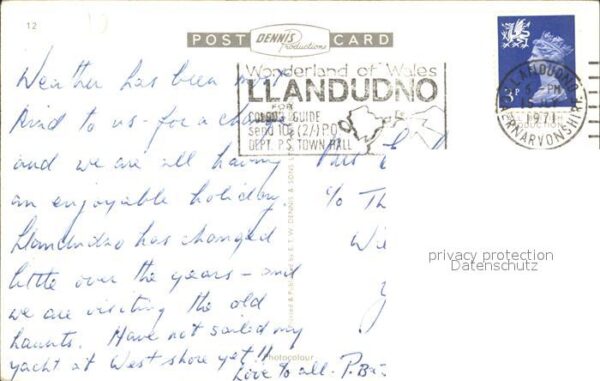 12
POST DENNIS Productions CARD
Wonderland of Wales
LLANDUDNO
FOR
GUIDE
send 10p (2/-) P.O
DEPT. P.S. TOWN HALL
3P
LLANDUDNO
PM
1971
CAERNARVONSHIRE
Weather has been
kind to us - for a change
and we are all having
an enjoyable holiday.
Llandudno has changed
little over the years - and
we are visiting the old
haunts. Have not sailed my
yacht at West shore yet!!
Love to all. P.
c/o Th
Wi
Y
privacy protection
Datenschutz
Published by E. T. W. DENNIS & SONS
Photocolour